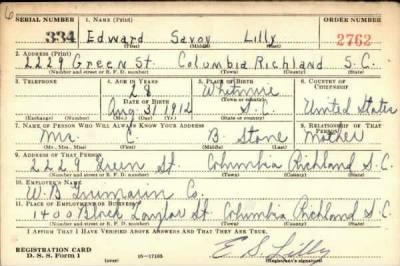 6
SERIAL NUMBER 1. NAME (Print) ORDER NUMBER
334 Edward Savoy Lilly 2762
(First) (Middle) (Last)
2. ADDRESS (Print)
2229 Green St. Columbia Richland S.C.
(Number and street or R. F. D. number) (Town) (County) (State)
3. TELEPHONE 4. AGE IN YEARS 5. PLACE OF BIRTH 6. COUNTRY OF CITIZENSHIP
28
DATE OF BIRTH (Town or county)
Aug. 31 1912 S.C. United States
(Exchange) (Number) (Mo.) (Day) (Yr.) (State or country)
7. NAME OF PERSON WHO WILL ALWAYS KNOW YOUR ADDRESS 8. RELATIONSHIP OF THAT PERSON
C. B. Stone Mother
(Mr., Mrs., Miss) (First) (Middle) (Last)
9. ADDRESS OF THAT PERSON
2229 Green St Columbia Richland S.C.
(Number and street or R. F. D. number) (Town) (County) (State)
10. EMPLOYER'S NAME
W. B. Co.
11. PLACE OF EMPLOYMENT OR BUSINESS
1400 Block Taylor St. Columbia Richland S.C.
(Number and street or R. F. D. number) (Town) (County) (State)
I AFFIRM THAT I HAVE VERIFIED ABOVE ANSWERS AND THAT THEY ARE TRUE.
REGISTRATION CARD E. S. Lilly
D. S. S. Form 1 (over) 16—17105 (Registrant's signature)